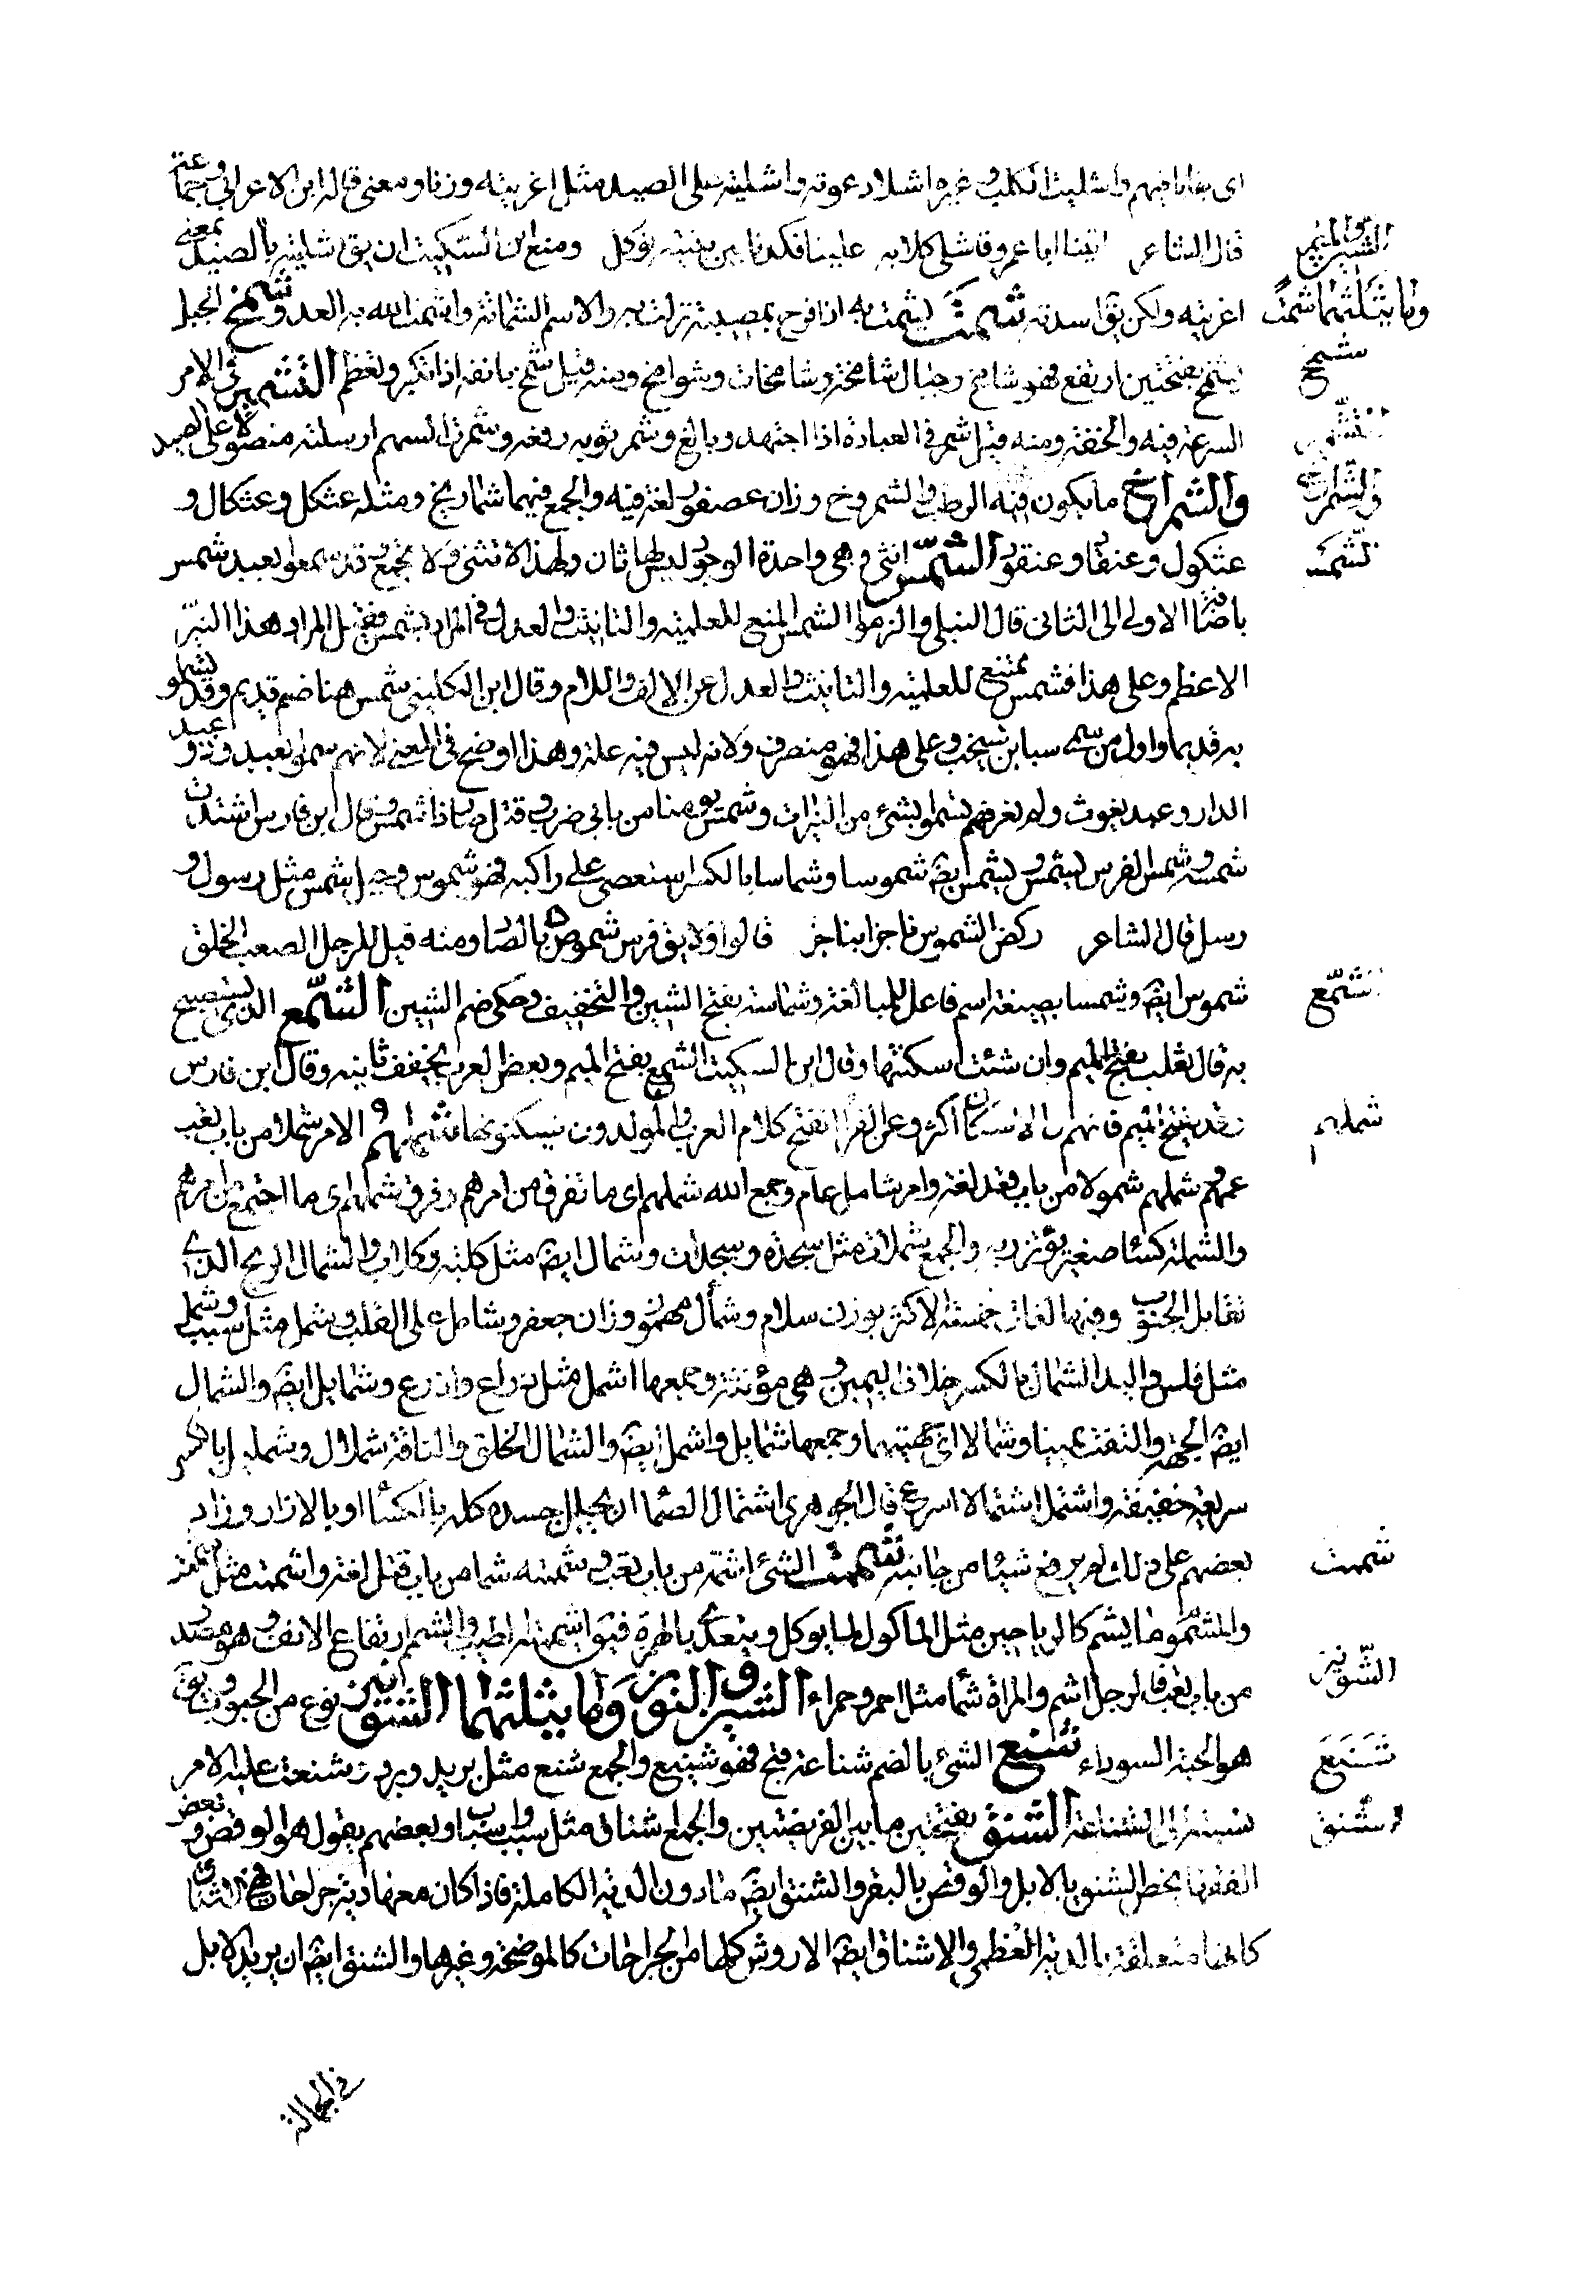 اى بقايا فيهم واشليت الكلب وغيره اشلاء دعوته واشليته على الصيد مثل اغريته وزنا ومعنى قاله ابن الاعرابى وجماعة
قال الشاعر اتينا ابا عمرو فاشلى كلابه علينا فكدنا بين بيتيه نؤكل ومنع ابن السكيت ان يق اشليته بالصيد بمعنى
الشين والميم
وما يثلثهما شمت
اغريته ولكن يق اسدته شمت يشمت به اذا فرح بمصيبة نزلت به والاسم الشماتة واشمت الله به العدو شمخ الجبل
شمخ
يشمخ بفتحتين ارتفع فهو شامخ وجبال شامخة وشامخات وشوامخ ومنه قيل شمخ بانفه اذا تكبر وتعظم التشمير فى الامر
التشمير
السرعة فيه والخفة ومنه قيل شمر فى العبادة اذا اجتهد وبالغ وشمر ثوبه رفعه وشمرت السهم ارسلته مصوبا على الصيد
والشمراخ
والشمراخ ما يكون فيه الرطب والشمروخ وزان عصفور لغة فيه والجمع فيهما شماريخ ومثله عثكل وعثكال و
الشمس
عثكول وعنقاد وعنقود الشمس انثى وهى واحدة الوجود ليس لها ثان ولهذا لا تثنى ولا تجمع وقد سموا بعبد شمس
باضافة الاول الى الثانى قال النيلى والزموا الشمس المنع للعلمية والتانيث والعدل فى المراد بشمس فقيل المراد هذا النير
الاعظم وعلى هذا فشمس ممتنع للعلمية والتانيث والعدل عن الالف واللام وقال ابن الكلبى شمس هنا صنم قديم وقد تسموا
به قديما واول من سمى سبا بن يشجب وعلى هذا فهو منصرف ولانه ليس فيه علة وهذا اوضح فى المعنى لانهم سموا بعبد ود وعبد
الدار وعبد يغوث ولم نعرفهم تسموا بشئ من النيرات وشمس يومنا من بابى ضرب وقتل صار ذا شمس وقال ابن فارس اشتدت
شمسه وشمس الفرس يشمس ويشمس ايضا شموسا وشماسا بالكسر استعصى على راكبه فهو شموس وخيل شمس مثل رسول و
رسل قال الشاعر ركض الشموس ناجزا بناجز قالوا ولا يق فرس شموص بالصاد ومنه قيل للرجل الصعب الخلق
شموس ايضا وشماس بصيغة اسم فاعل للمبالغة وشماسة بفتح الشين والتخفيف وحكى ضم الشين الشمع الذى يستصبح
الشمع
به قال ثعلب بفتح الميم وان شئت اسكنتها وقال ابن السكيت الشمع بفتح الميم وبعض العرب يخفف ثانيه وقال ابن فارس
وقد يفتح الميم فافهم ان الاسكان اكثر وعن الفرا الفتح كلام العرب والمولدون يسكنونها شملهم الامر شملا من باب تعب
شملهم
عمهم وشملهم شمولا من باب قعد لغة وامر شامل عام وجمع الله شملهم اى ما تفرق من امرهم وفرق شملهم اى ما اجتمع من امرهم
والشملة كساء صغير يؤتزر به والجمع شملات مثل سجدة وسجدات وشمال ايضا مثل كلبة وكلاب والشمال الريح الذى
تقابل الجنوب وفيها لغات خمس الاكثر بوزن سلام وشمأل مهموز وزان جعفر وشامل على القلب وشمل مثل سبب وشمل
مثل فلس واليد الشمال بالكسر خلاف اليمين وهى مؤنثة وجمعها اشمل مثل ذراع واذرع وشمايل ايضا والشمال
ايضا الجهة والتفت يمينا وشمالا اى جهتيهما وجمعها شمايل واشمل ايضا والشمال الخلق والناقة شملال وشمليل بالكسر
سريعة خفيفة واشتمل اشتمالا اسرع قال الجوهرى اشتمال الصما ان يجلل جسده كله بالكسا او بالازار وزاد
بعضهم على ذلك لم يرفع شيئا من جانبه شممت الشئ اشمه من باب تعب وشممته شما من باب قتل لغة واشممت مثل
شممت
والمشموم ما يشم كالرياحين مثل الماكول لما يوكل ويتعدى بالهمزة فيق اشممته الطيب والشمم ارتفاع الانف وهو مصدر
من باب تعب فالرجل اشم والمراة شما مثل احمر وحمراء الشين والنون وما يثلثهما الشونيز نوع من الحبوب ويق
الشونيز
هو الحبة السوداء شنع الشئ بالضم شناعة قبح فهو شنيع والجمع شنع مثل بريد وبرد وشنعت عليه الامر
شنع
نسبته الى الشناعة الشنق بفتحتين ما بين الفريضتين والجمع اشناق مثل سبب واسباب وبعضهم يقول هو الوقص وبعض
الشنق
الفقها يخص الشنق بالابل والوقص بالبقر والشنق ايضا ما دون الدية الكاملة فاذا كان معها دية جراحات فهى الشناق
كانها متعلقة بالدية العظمى والاشناق ايضا الاروش كلها من الجراحات كالموضحة وغيرها والشنق ايضا ان يزيد الابل
فى الحمالة